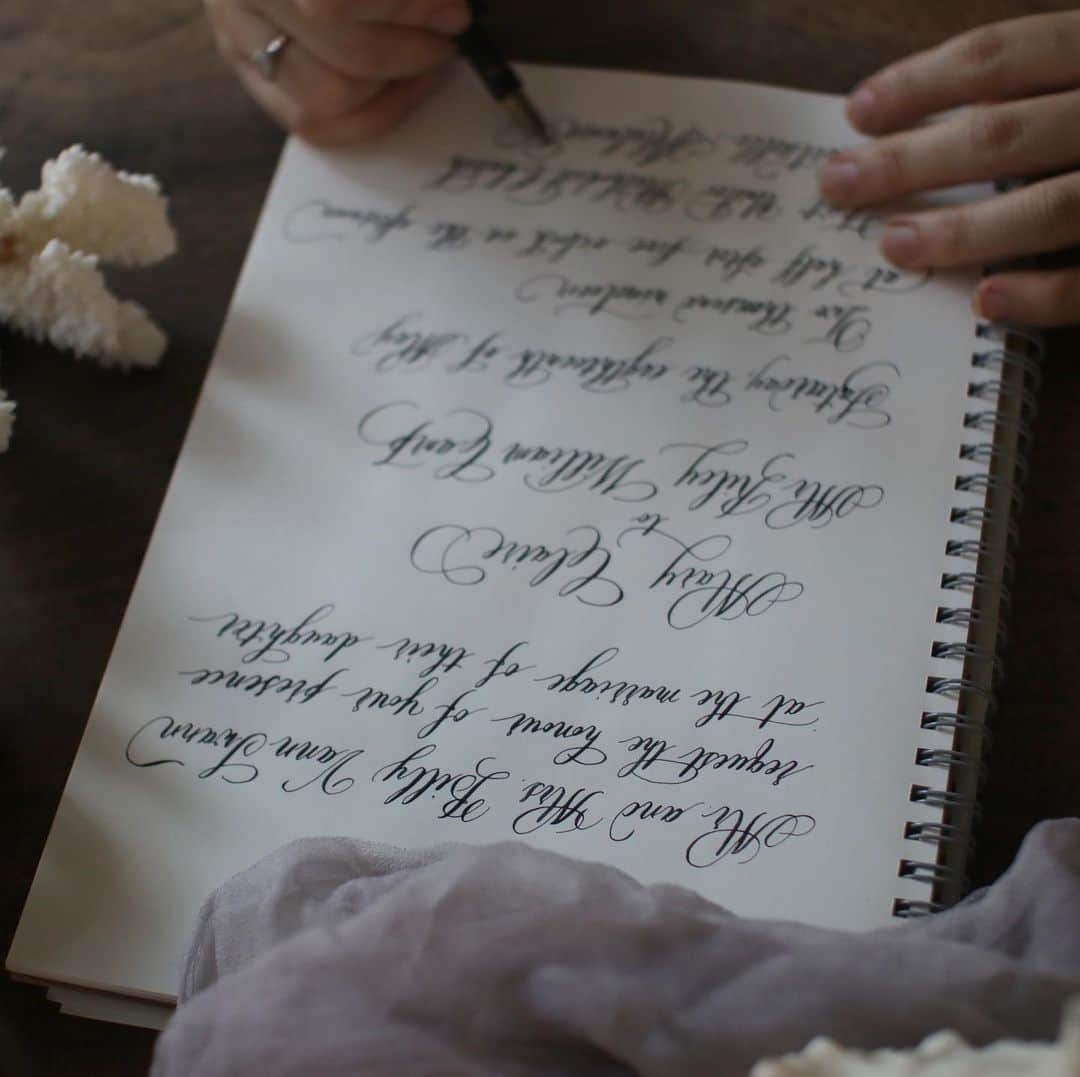 Mr. and Mrs. Billy Vann Swann
request the honour of your presence
at the marriage of their daughter
Mary Claire
to
Mr. Riley William Cants
Saturday, the eighteenth of May
Two thousand nineteen
at half after five o'clock in the afternoon